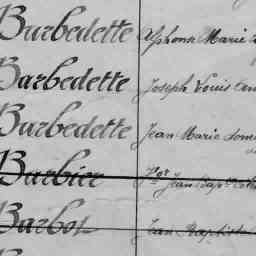 Barbedette Alphonse Marie
Barbedette Joseph Louis
Barbedette Jean Marie
Barbier Jean Bapt
Barbot Jean Baptiste